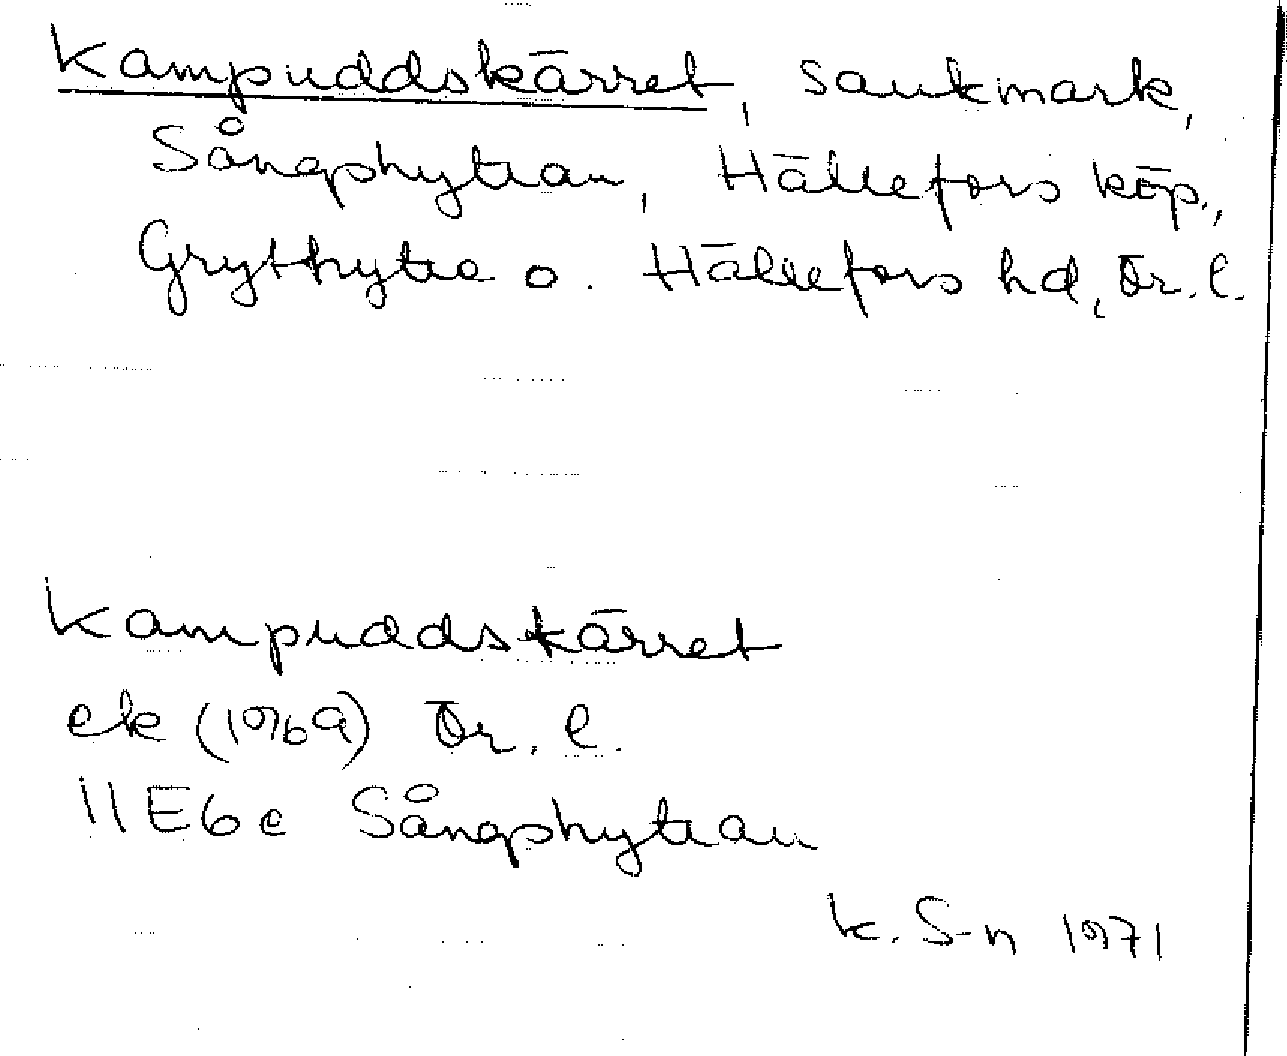 Kampuddskärret, sankmark,
Sångphyttan, Hällefors köp.,
Grythytte o. Hällefors hd, Ör. l.
Kampuddskärret
ek (1969) Ör. l.
11E6e Sångphyttan
K. S-n 1971